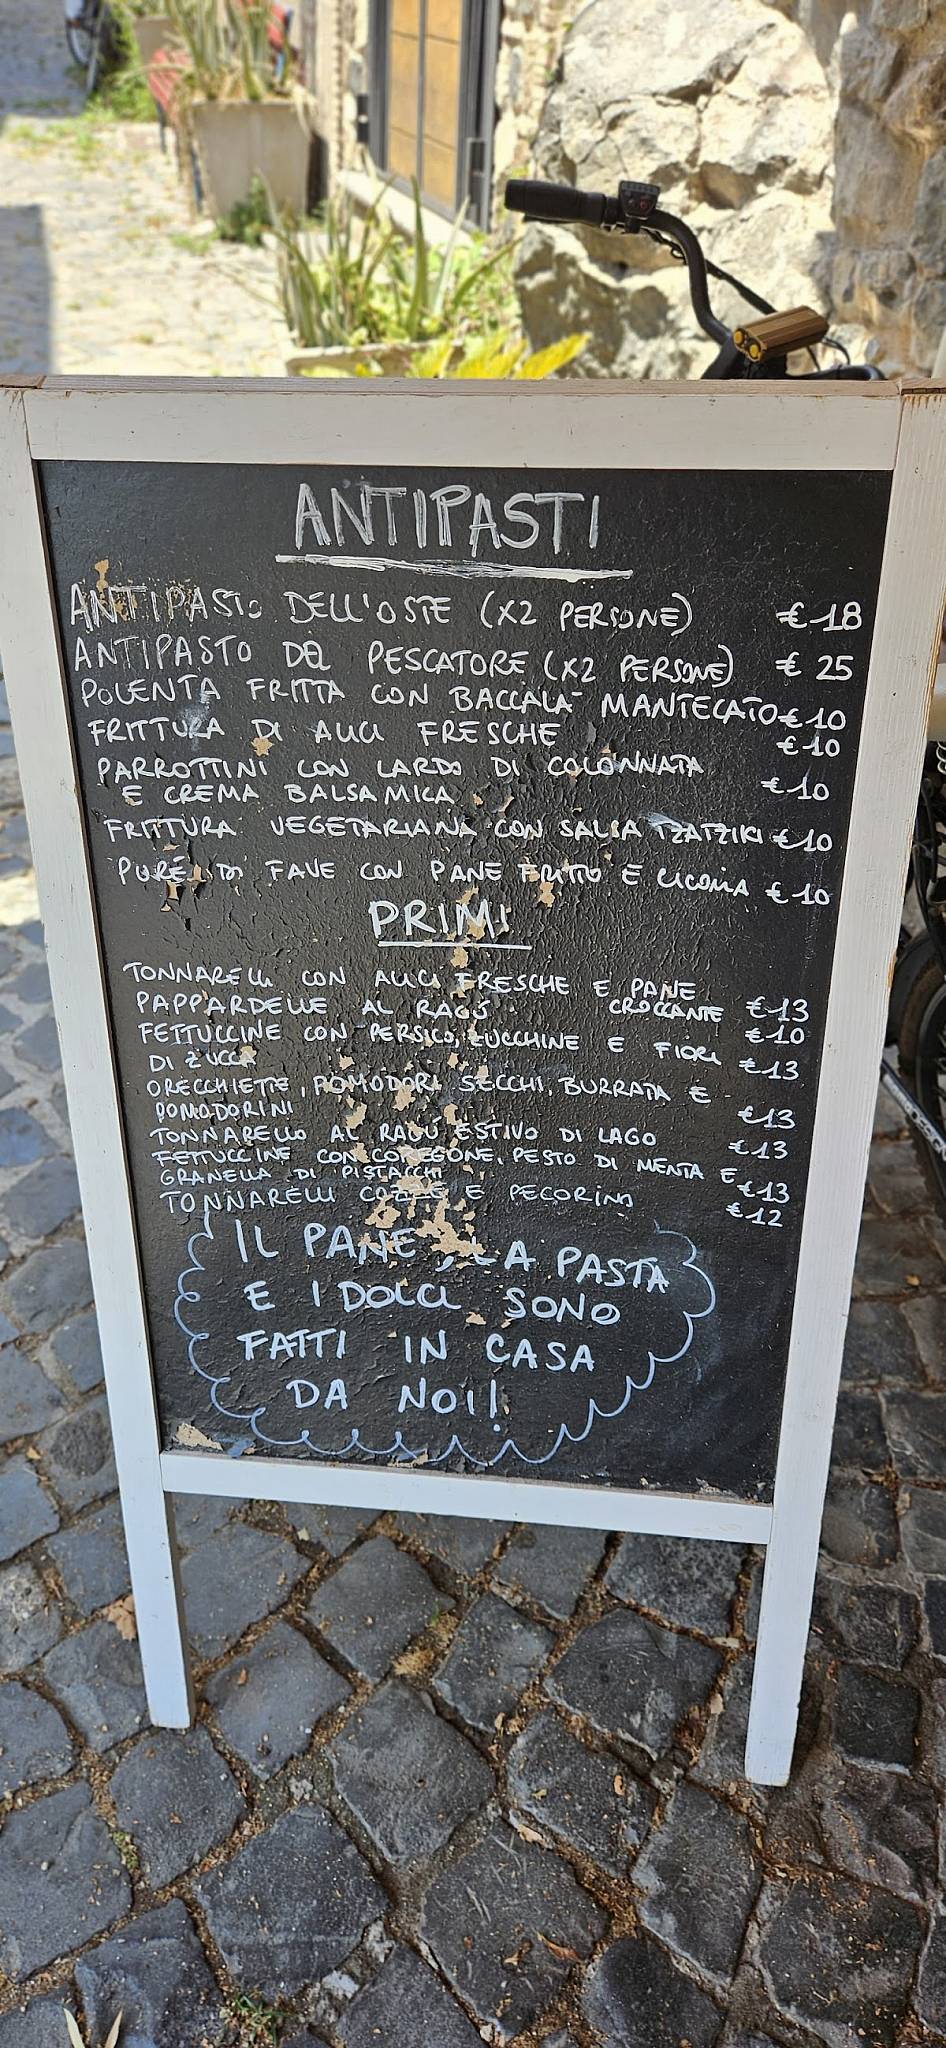 ANTIPASTI
ANTIPASTO DELL'OSTE (X2 PERSONE) € 18
ANTIPASTO DEL PESCATORE (X2 PERSONE) € 25
POLENTA FRITTA CON BACCALA' MANTECATO € 10
FRITTURA DI ALICI FRESCHE € 10
PARROTTINI CON LARDO DI COLONNATA
E CREMA BALSAMICA € 10
FRITTURA VEGETARIANA CON SALSA TZATZIKI € 10
PURÈ DI FAVE CON PANE FRITTO E CICORIA € 10
PRIMI
TONNARELLI CON ALICI FRESCHE E PANE
CROCCANTE € 13
PAPPARDELLE AL RAGÙ € 10
FETTUCCINE CON PERSICO, ZUCCHINE E FIORI
DI ZUCCA € 13
ORECCHIETTE, POMODORI SECCHI, BURRATA E
POMODORINI € 13
TONNARELLO AL RAGÙ ESTIVO DI LAGO € 13
FETTUCCINE CON COREGONE, PESTO DI MENTA E
GRANELLA DI PISTACCHI € 13
TONNARELLI COZZE E PECORINO € 12
IL PANE, LA PASTA
E I DOLCI SONO
FATTI IN CASA
DA NOI!